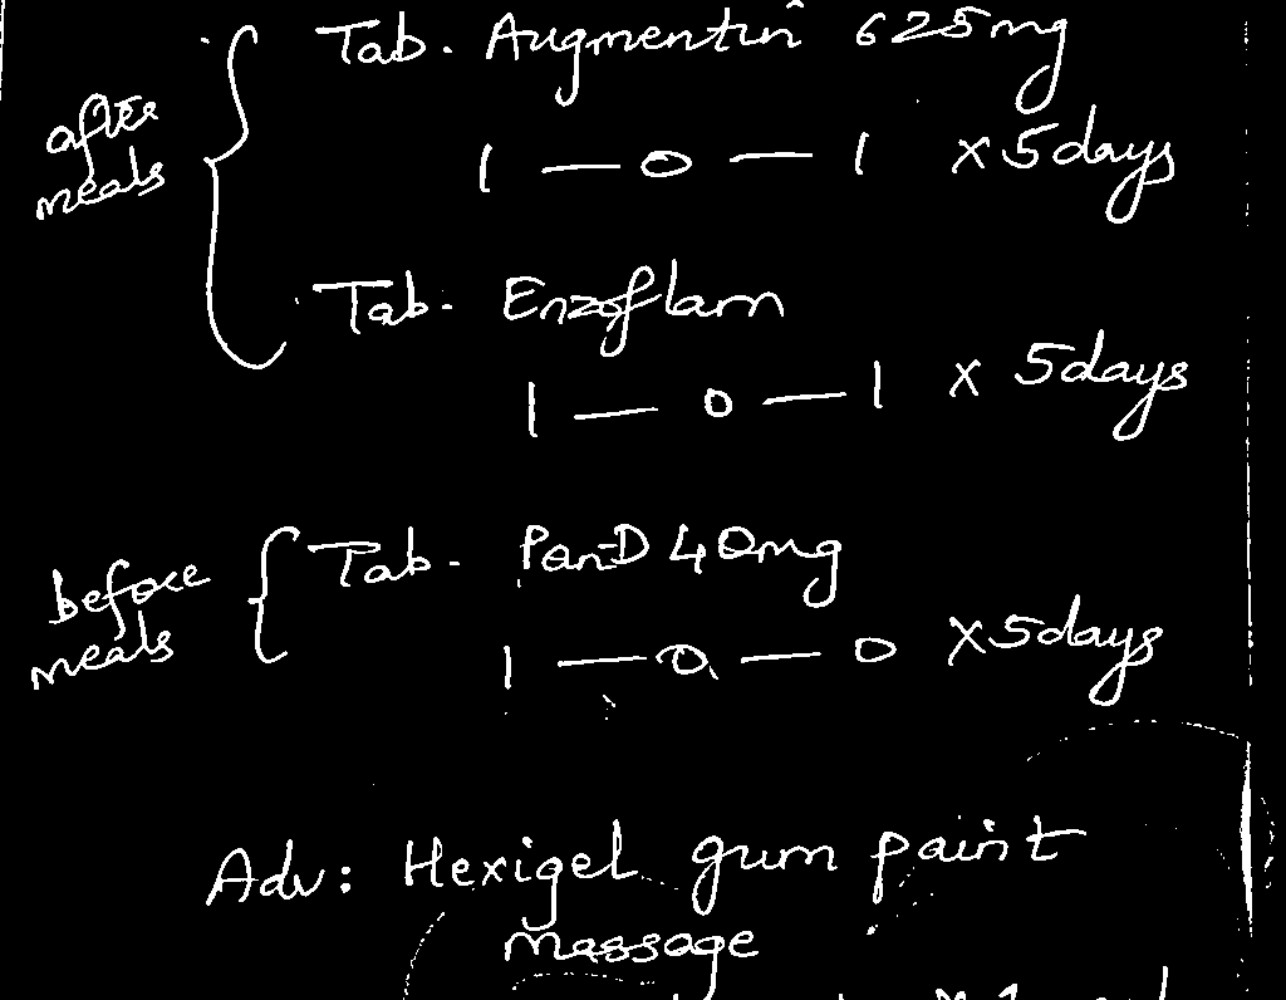 Tab. Augmentin 625mg
after
meals
1 — 0 — 1 x 5 days
Tab. Enzoflam
1 — 0 — 1 x 5 days
before
meals
Tab. PanD 40mg
1 — 0 — 0 x 5 days
Adv: Hexigel gum paint
massage